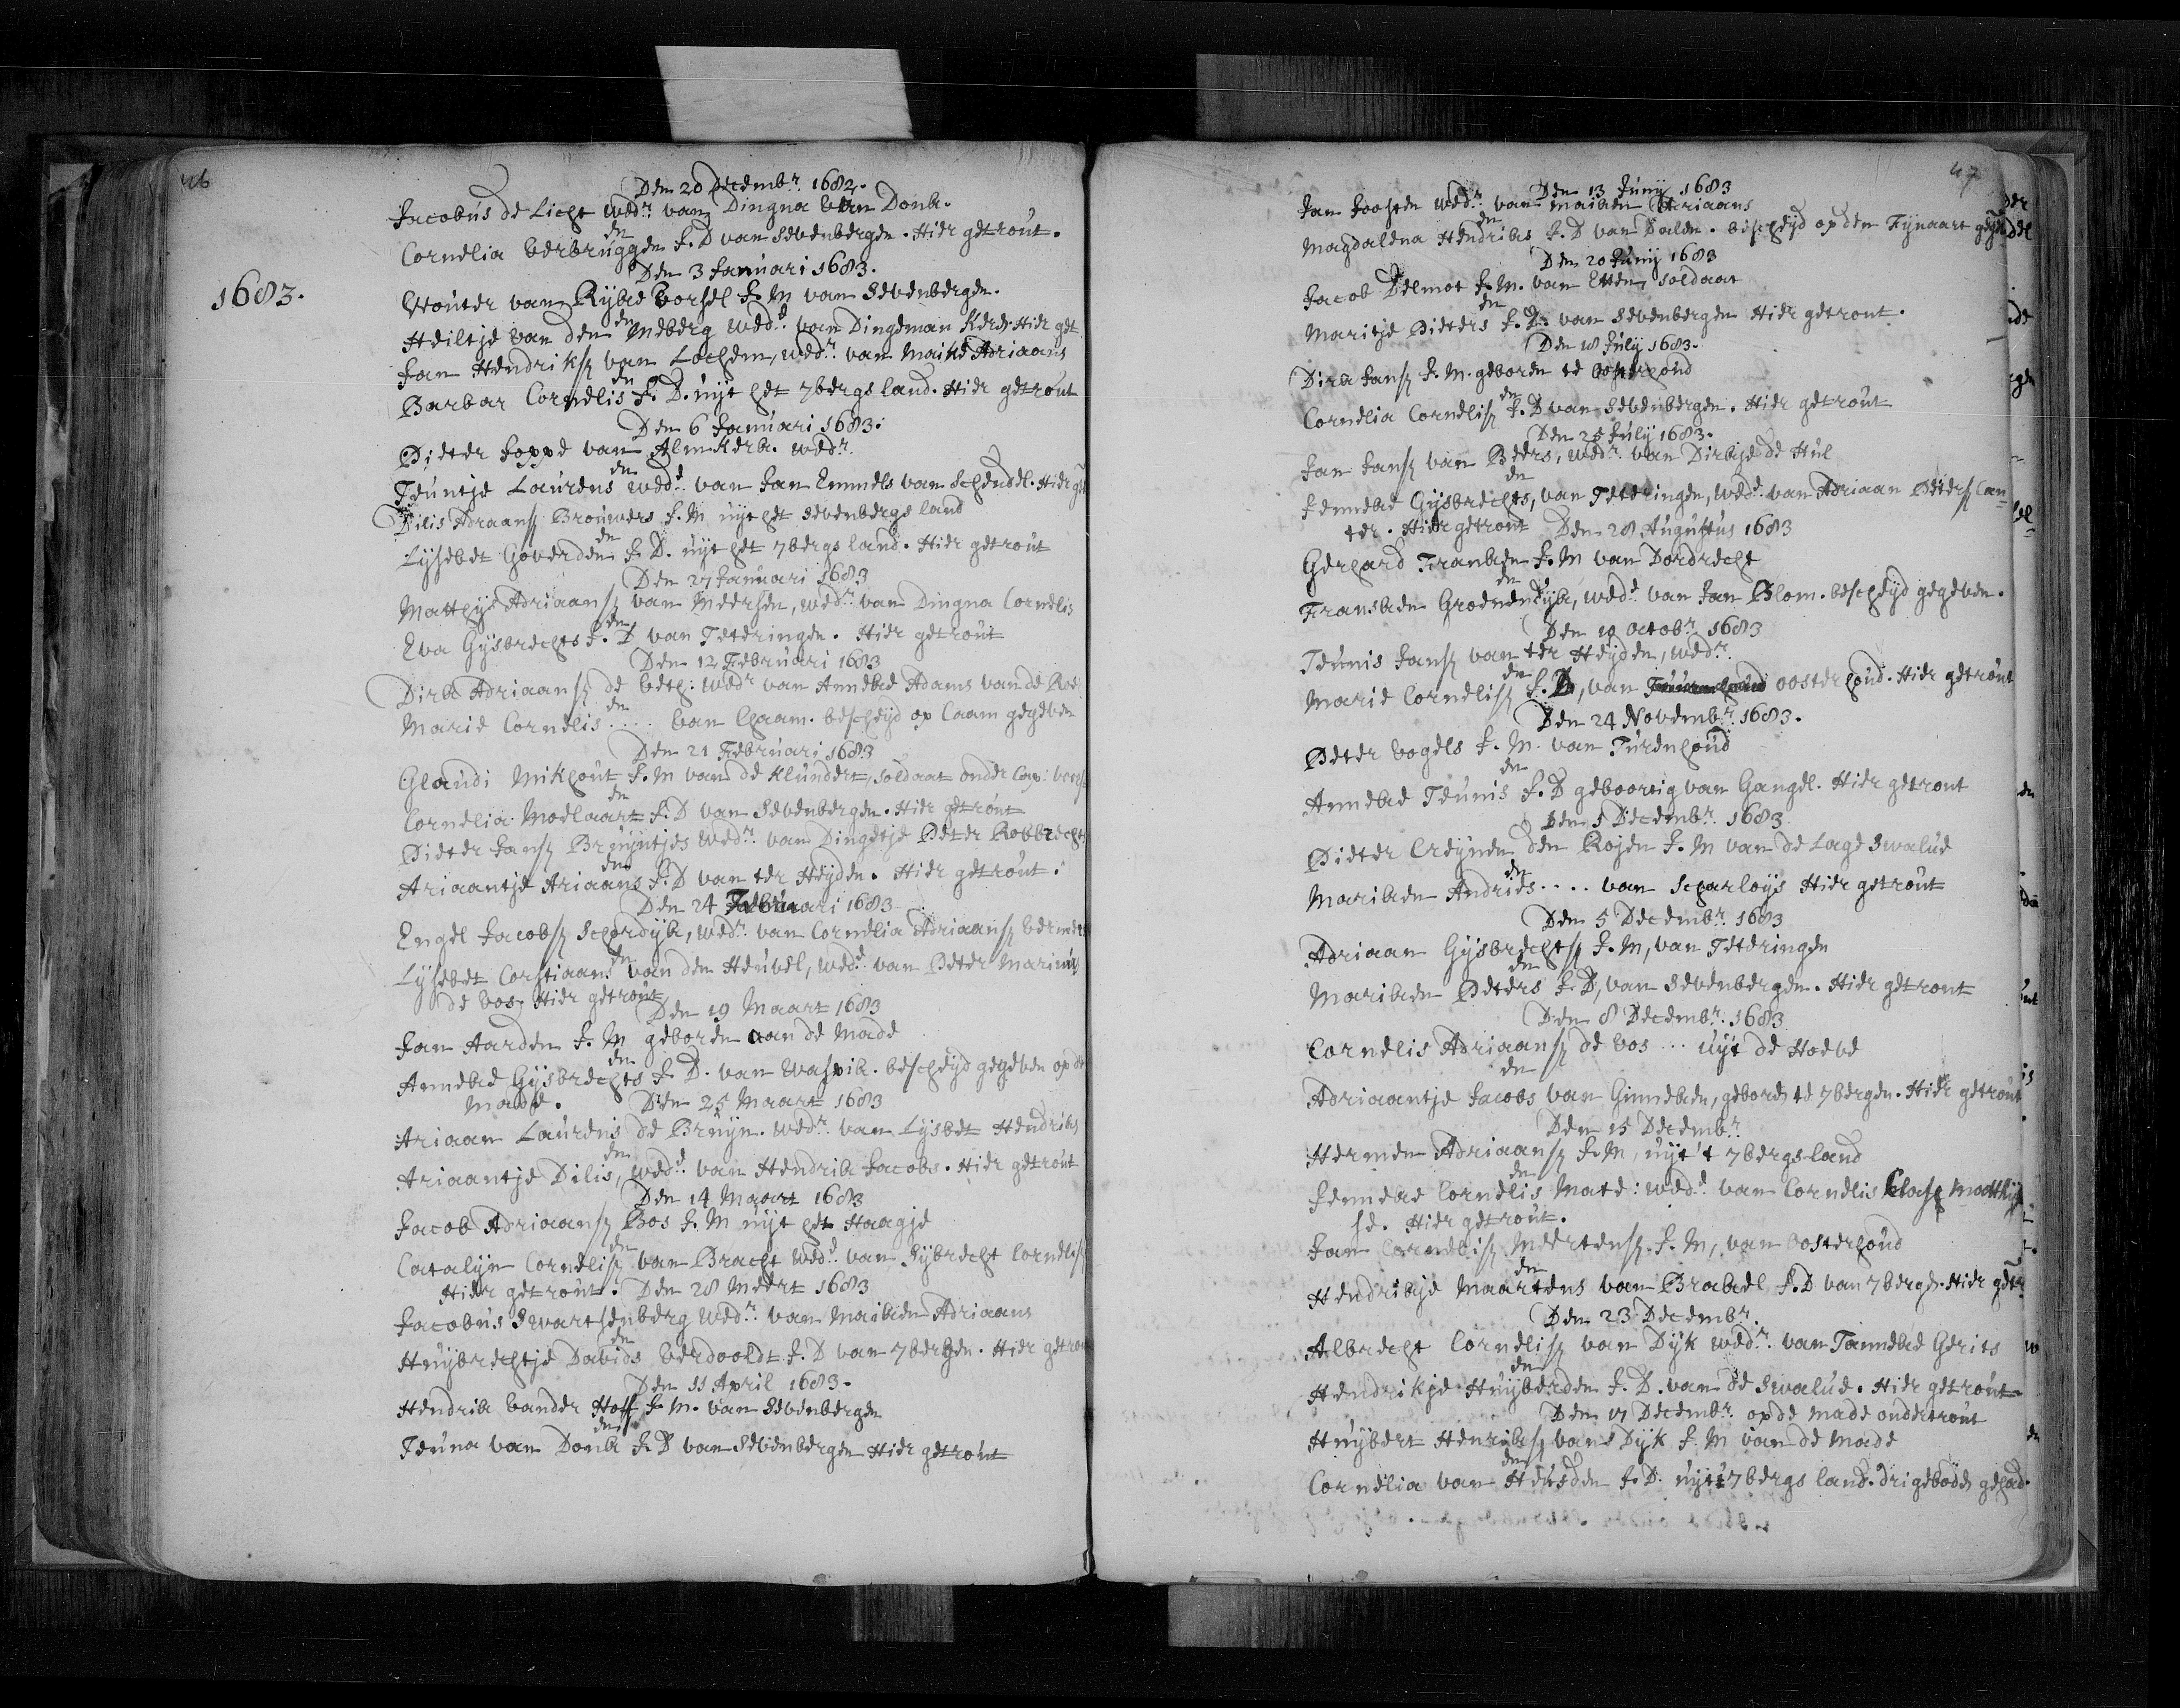 46
Den 20 Decemb.r 1682.
Jacobus de Licht wed.r van Dingna van Donk.
en
Cornelia verbruggen J. D van Sevenbergen. Hier getrout.
1683.
Den 3 Januari 1683.
Wouter van Rijke vorsel J. M van Sevenbergen.
en
Heiltje van den Meberg wed.e van Dingeman Hier get
Jan Hendriksz van Lochem, wed.r van Maike Adriaans
en
Barbar Cornelis J. D. uijt het 7bergs land. Hier getrout
Den 6 Januari 1683.
Pieter Joppe van Almkerk. wed.r
en
Teuntje Laurens wed.e van Jan Emmels van Schendel. Hier get
Dilis Adraansz Brouwers J. M uijt het Sevenbergs land
en
Lijsebet Goverden J. D. uijt het 7bergs land. Hier getrout
Den 27 Januari 1683
Matthijs Adriaansz van Meersen, wed.r van Dingna Cornelis
en
Eva Gijsbrechts J. D van Teteringen. Hier getrout
Den 12 Februari 1683
Dirk Adriaansz de veth: wed.r van Anneke Adams van de
en
Marie Cornelis .... van Chaam. bescheijd op Caam gegeven
Den 21 Februari 1683
Glaudi Mikhout J. M van de Klundert, soldaat onder Cap:
en
Cornelia Moelaart J. D van Sevenbergen. Hier getrout
Pieter Jansz Bruijntjes wed.r van Dingetje Peter Robbrechts
en
Ariaantje Ariaans J. D van ter Heijden. Hier getrout.
Den 24 Februari 1683
Engel Jacobsz Schordijk, wed.r van Cornelia Adriaansz
en
Lijsebet Corstiaans van den Heuvel, wed.e van Peter Marinus
de vos. Hier getrout
Den 19 Maart 1683
Jan Aarden J. M geboren aan de Made
en
Anneke Gijsbrechts J. D. van Waspik. bescheijd gegeven op de
Made. Den 25 Maart 1683
Ariaan Laurens de Bruijn. wed.r van Lijsbet Hendriks
en
Ariaantje Dilis, wed.e van Hendrik Jacobs. Hier getrout
Den 14 Maart 1683
Jacob Adriaansz Bos J. M uijt het Haagje
en
Catalijn Cornelisz van Bracht wed.e van Sijbrecht Cornelisz
Hier getrout. Den 28 Meert 1683
Jacobus Swartsenberg wed.r van Maiken Adriaans
en
Huijbrechtje Davids verdooldt J. D van 7bergen. Hier getrou
Den 11 April 1683.
Hendrik vander Hoff J. M. van Sevenbergen
en
Teuna van Donk J. D van Sevenbergen Hier getrout
47
Den 13 Junij 1683
Jan Joosten wed.r van Maiken Adriaans
en
Magdalena Hendriks J. D van Dalen. bescheijd op den Fijnaart
Den 20 Junij 1683
Jacob Delmot J. M. van Etten, soldaat
en
Maritje Pieters J. D. van Sevenbergen Hier getrout.
Den 18 Julij 1683.
Dirk Jansz J. M. geboren te Oosterhoud
en
Cornelia Cornelisz J. D van Sevenbergen. Hier getrout
Den 25 Julij 1683.
Jan Jansz van Beers, wed.r van Dirkje de Hul
en
Jenneke Gijsbrechts, van Teteringen, wed.e van Adriaan Petersz Can-
ter. Hier getrout Den 28 Augustus 1683
Gerhard Franken J. M van Dordrecht
en
Fransken Groenendijk, wed.e van Jan Blom. bescheijd gegeven.
Den 10 Octob.r 1683
Teunis Jansz van ter Heijden, wed.r
en
Marie Cornelisz J. D, van oosterhoud. Hier getrout
Den 24 Novemb.r 1683.
Peter Vogels J. M. van Turenhoud
en
Anneke Teunis J. D geboortig van Gangel. Hier getrout
Den 1 Decemb.r 1683
Pieter Creijnen den Rojen J. M van de Lage Swalue
en
Mariken Andries .... van Scharloijs Hier getrout
Den 5 Decemb.r 1683
Adriaan Gijsbrechtsz J. M, van Teteringen
en
Mariken Peters J. D, van Sevenbergen. Hier getrout
Den 8 Decemb.r 1683
Cornelis Adriaansz de Vos ... uijt de Hoeve
en
Adriaantje Jacobs van Ginneken, geboren te 7bergen. Hier getrout
Den 15 Decemb.r
Hermen Adriaansz J. M, uijt 't 7bergs land
en
Jenneke Cornelis Mate: wed.e van Cornelis Clasz Matthij
se. Hier getrout.
Jan Cornelisz Meertensz. J. M, van Oosterhoud
en
Hendrikje Maartens van Brakel J. D van 7bergen. Hier getr
Den 23 Decemb.r
Albrecht Cornelisz van Dijk wed.r van Tanneke Gerits
en
Hendrikje Huijberden J. D. van de Swalue. Hier getrout.
Den 17 Decemb.r op de Made ondertrout
Huijbert Henriksz van Dijk J. M van de Made
en
Cornelia van Heusden J. D. uijt 7bergs land. dri geboden gehad.